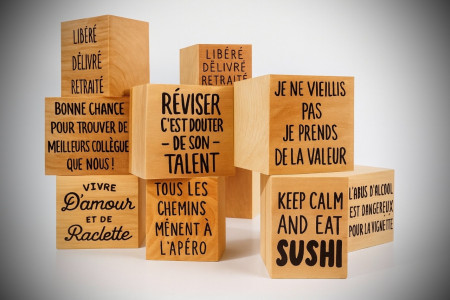 LIBÉRÉ
DÉLIVRÉ
RETRAITÉ
LIBÉRÉ
DÉLIVRÉ
RETRAITÉ
BONNE CHANCE
POUR TROUVER DE
MEILLEURS COLLÈGUE
QUE NOUS !
RÉVISER
C'EST DOUTER
- DE SON -
TALENT
JE NE VIEILLIS
PAS
JE PRENDS
DE LA VALEUR
VIVRE
D'amour
ET DE
Raclette
TOUS LES
CHEMINS
MÈNENT À
L'APÉRO
KEEP CALM
AND EAT
SUSHI
L'ABUS D'ALCOOL
EST DANGEREUX
POUR LA VIGNETTE